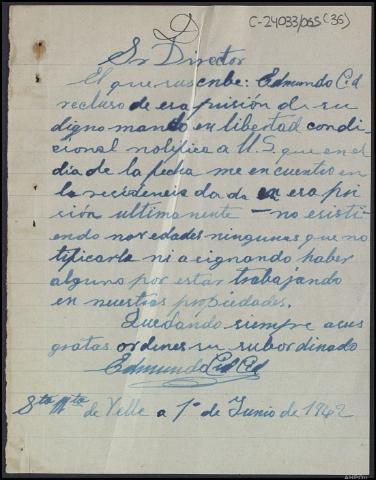 C-24033/065 (36)
Sr Director
El que suscribe: Edmundo Cid
recluso de esa prisión de su
digno mando en libertad condi-
cional notifica a U.S. que en el
dia de la fecha me encuentro en
la recidencia dada en esa pri
sión ultimamente — no esisti-
endo novedades ningunas que no
tificarle ni acignando haber
alguno por estar trabajando
en nuestras propiedades.
Quedando siempre a sus
gratas ordenes su subordinado
Edmundo Cid Cid
Sta Mta de Velle a 1º de Junio de 1942